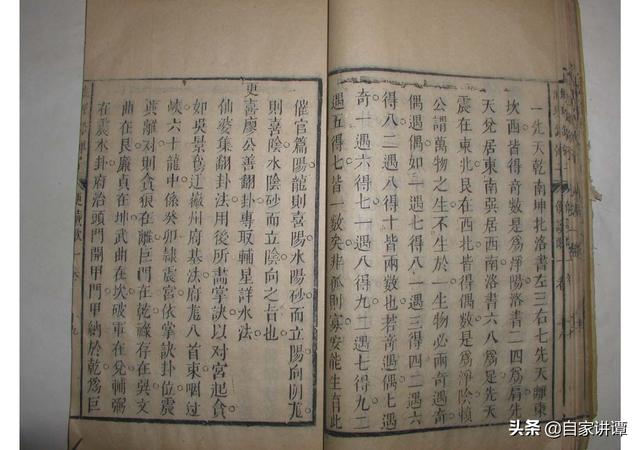 一先天乾南坤北洛書左三右七先天離東
坎西皆得奇數是爲淨陽洛書二四爲肩先
天兌居東南巽居西南洛書六八爲足先天
震在東北艮在西北皆得偶數是爲淨陰
公謂萬物之生不生於一生物必兩奇遇奇
偶遇偶如一遇七得八一遇三得四二遇六
得八二遇八得十皆兩數也若奇遇偶七遇
奇一遇六得七一遇八得九二遇七得九二
遇五得七皆一數矣非孤則寡安能生育此
催官篇陽龍則喜陽水陽砂而立陽向陰龙
則喜陰水陰砂而立陰向之吉也
更喜廖公善翻卦專取輔星詳水法
仙婆集翻卦法用後所薷掌訣以对宮起貪
如吳景鸾辽徽州府基法府龙八首束咽过
峡六十龍中係癸卯隸震宮依掌訣卦位震
與離对則貪狼在離巨門在乾祿存在巽文
曲在艮廉貞在坤武曲在坎破軍在兌輔弼
在震水卦府治頭門開甲門甲納於乾爲巨
头条 @自家讲谭